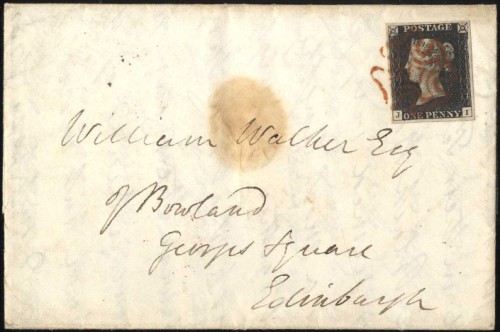 POSTAGE
J ONE PENNY I
William Walker Esq
of Bowland
Georges Square
Edinburgh